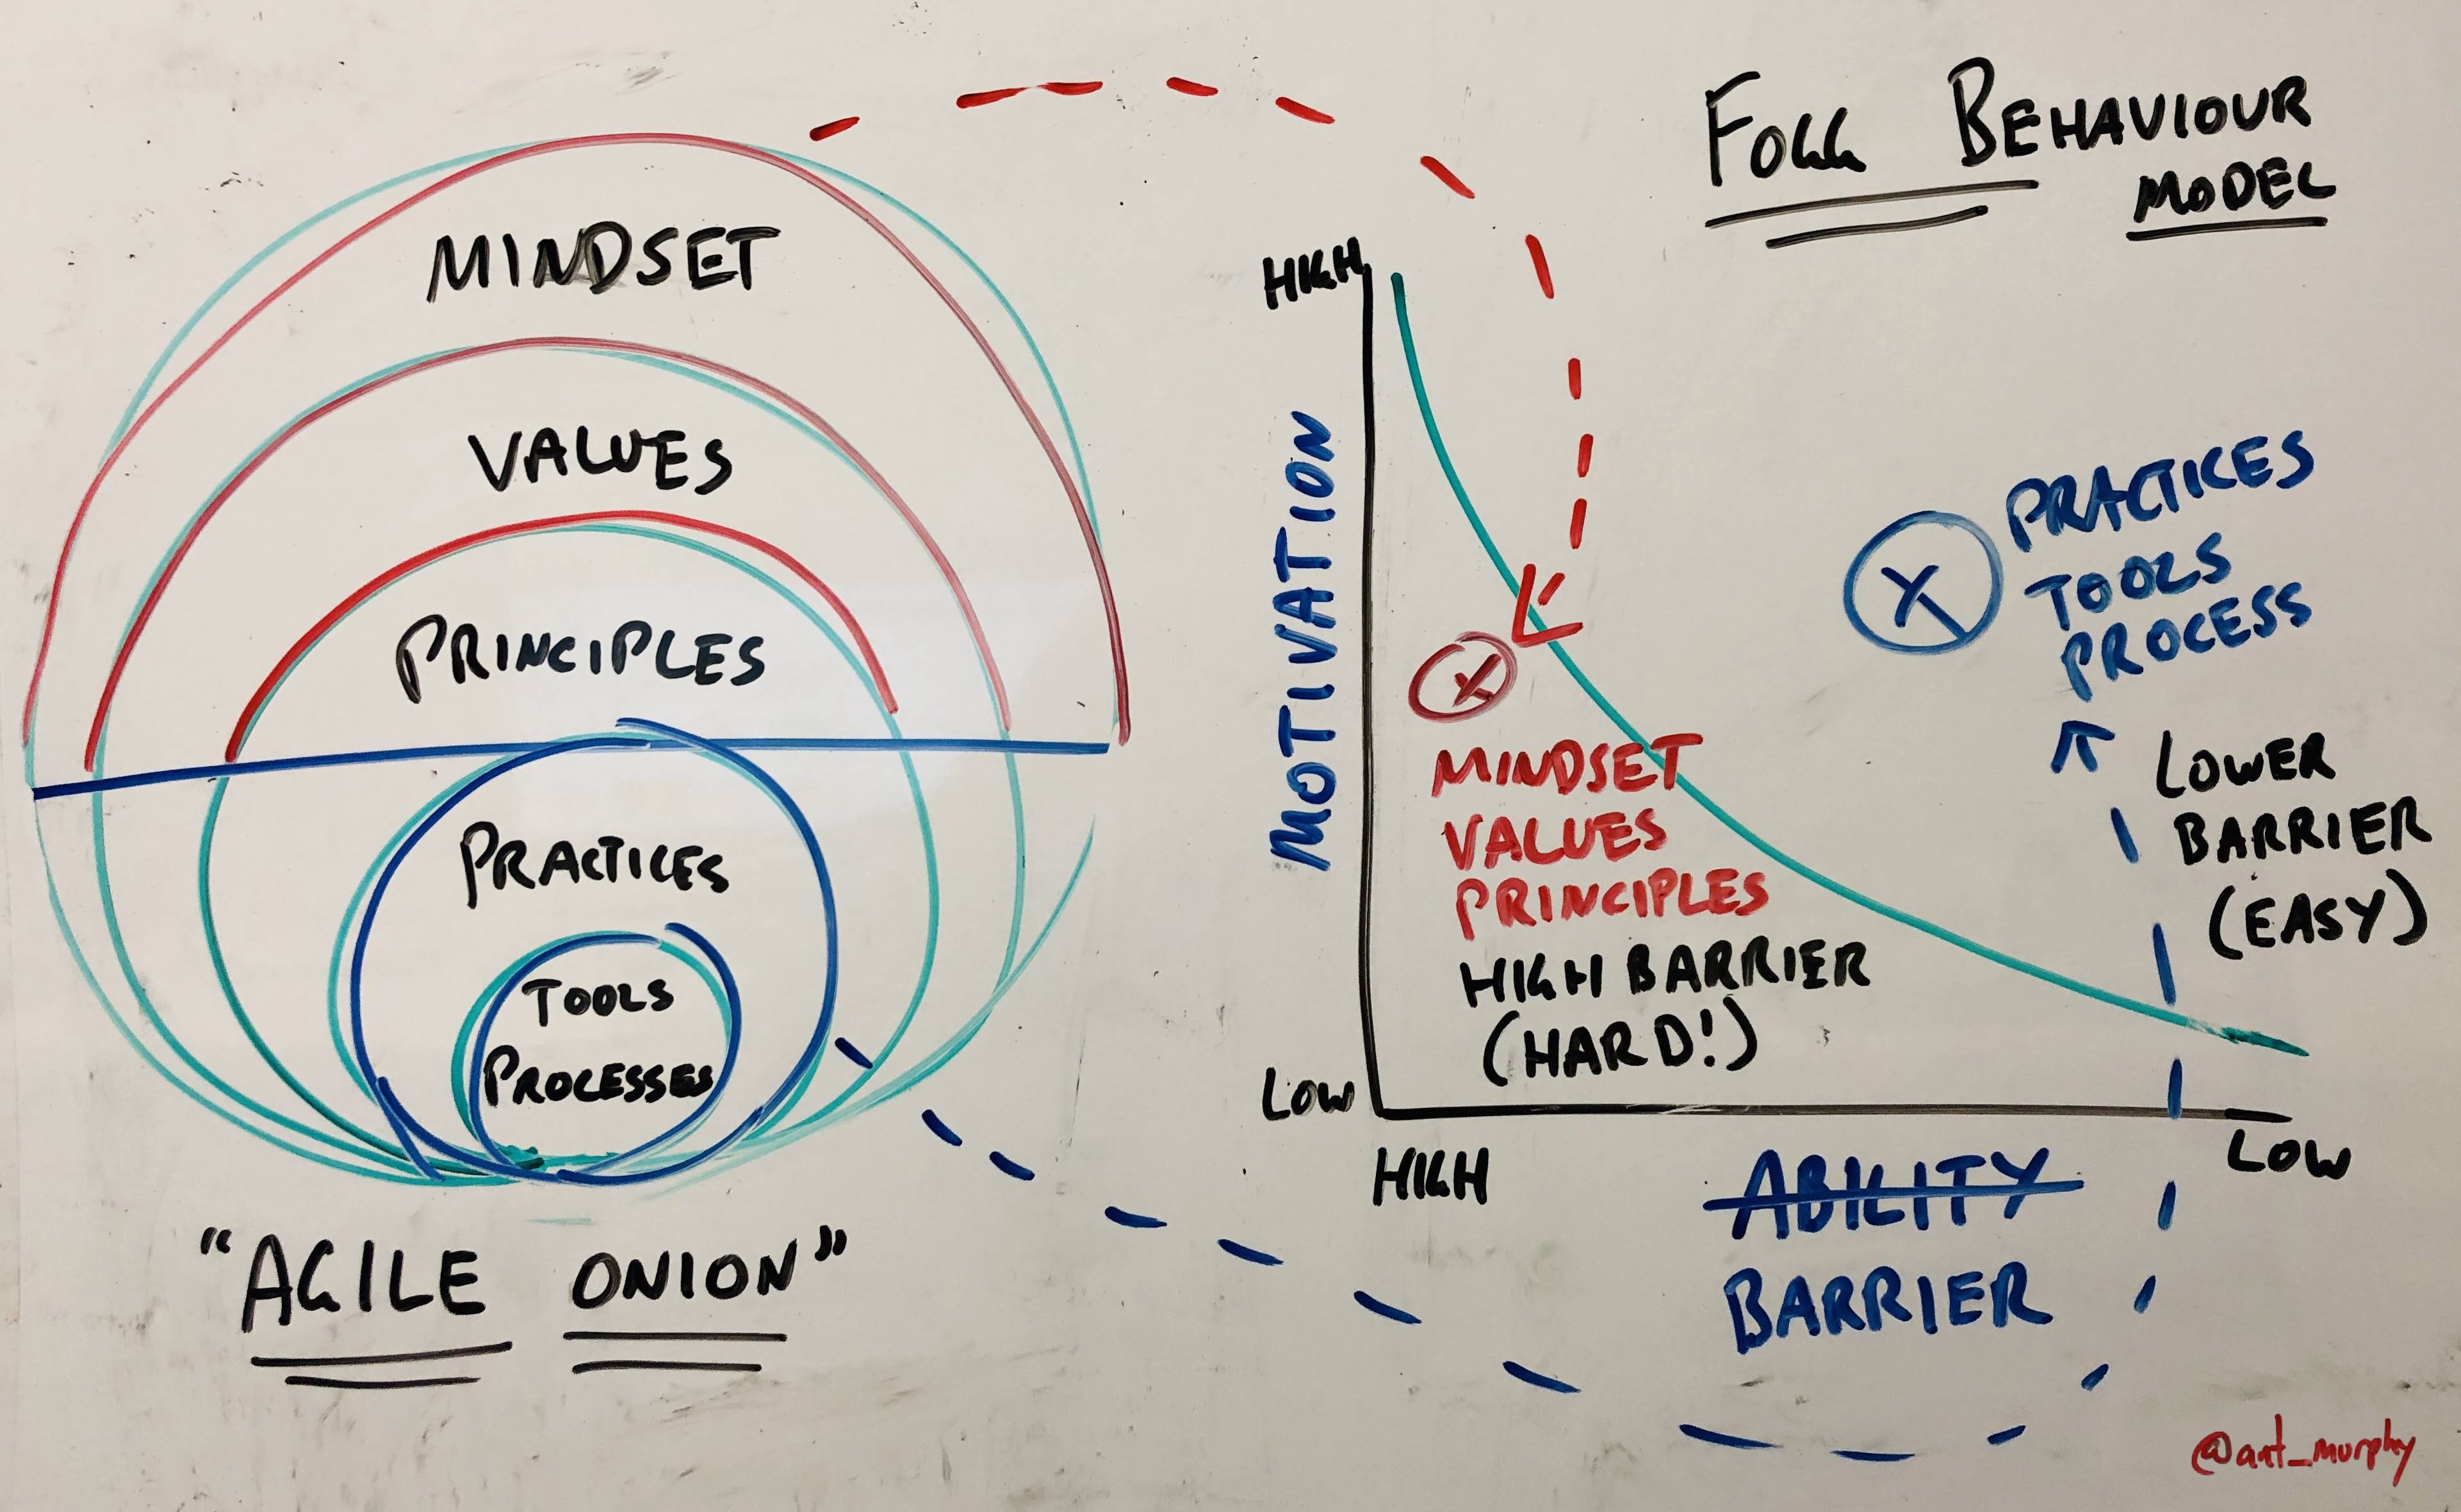 MINDSET
VALUES
PRINCIPLES
PRACTICES
TOOLS
PROCESSES
"AGILE ONION"
FOGG BEHAVIOUR
MODEL
HIGH
MOTIVATION
LOW
HIGH
LOW
ABILITY
BARRIER
MINDSET
VALUES
PRINCIPLES
HIGH BARRIER
(HARD!)
X
X
PRACTICES
TOOLS
PROCESS
LOWER
BARRIER
(EASY)
@ant_murphy